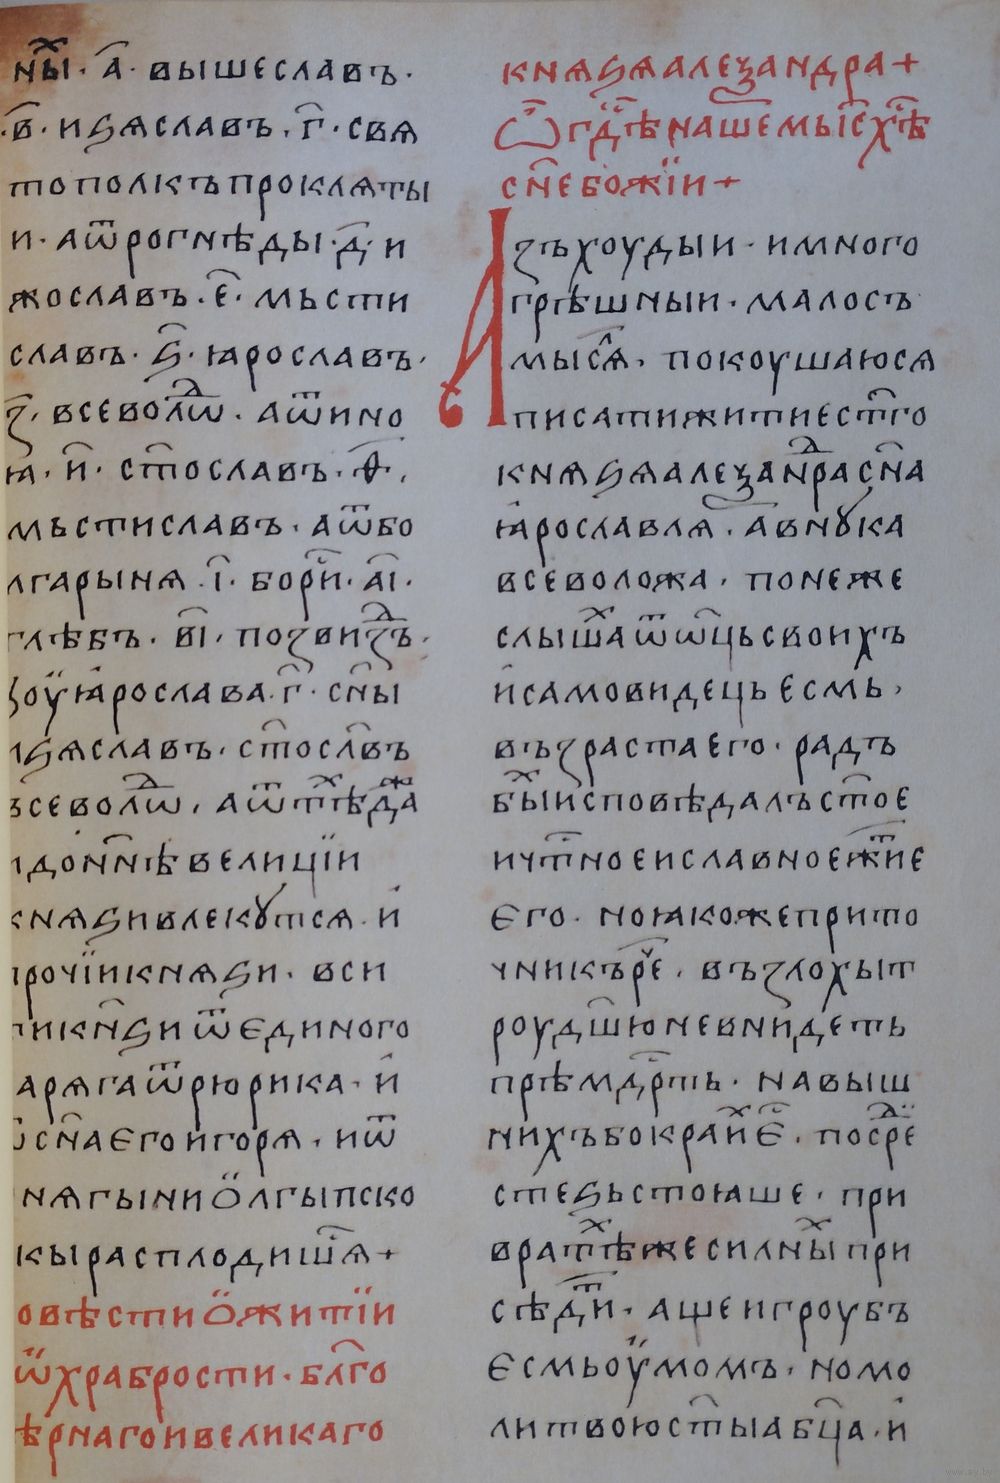 ны̑х · а҃ · вышеславъ ·
· в҃ · иꙃѧславъ · г҃ · свѧ
тополкъ проклѧты
и · а ѿ рогнѣды · д҃ · и
жославъ · є҃ · мьсти
славъ · ѕ҃ · ꙗрославъ ·
з҃ · всеволѡⷣ · а ѿ ино
ꙗ · и҃ · ст҃ославъ · ѳ҃ ·
мьстиславъ · а ѿ бо
лгарынѧ · і҃ · бори҃ · аі҃ ·
глѣбъ · ві҃ · позвизⷣъ ·
ꙗрослава · г҃ · сн҃ы
иꙃѧславъ · ст҃ослв҃ъ
всеволѡⷣ · а ѿ тѣⷯ даⷤ
и до нн҃ѣ велиції
кнѧꙃи влекꙋтсѧ · и
прочїи кнѧꙃи · вси
ти кн҃ꙃи ѿ єдиного
варѧга ѿ рюрика · и
ѿ сн҃а єго игорѧ · и ѿ
кнѧгыни ѻлгы пско
кы расплодишⷭѧ +
повѣсти ѻ житїи
ѡ храбрости · блг҃о
вѣрнаго и великаго
кнѧꙃѧ алеѯандра +
Ѡ гдⷭѣ нашемь ісⷭ хⷭѣ
сн҃е божїи +
Азъ хоудыи · и много
грѣшныи · малосъ
мыслѧ · покоушаюсѧ
писати житие ст҃го
кнѧꙃѧ алеѯанⷣра сн҃а
ꙗрославлѧ · а внꙋка
всеволожа · понеже
слышаⷯ ѿ ѡц҃ь своихъ
и самовидець есмь ·
възраста его · радъ
быⷯ исповѣдалъ ст҃ое
и чⷭтное и славное жит҃ие
єго · но ꙗкоже прито
чникъ реⷱ · въ злохыт
роу дш҃ю не внидеть
прѣмдрⷭть · на выш
нихъ бо краиⷯ єⷭ · посреⷣ
стеꙃь стоꙗше · при
вратѣⷯ же силныⷯ при
сѣдⷮи · аще и гроубъ
єсмь оумомъ · но мо
литвою ст҃ыа бц҃а · и